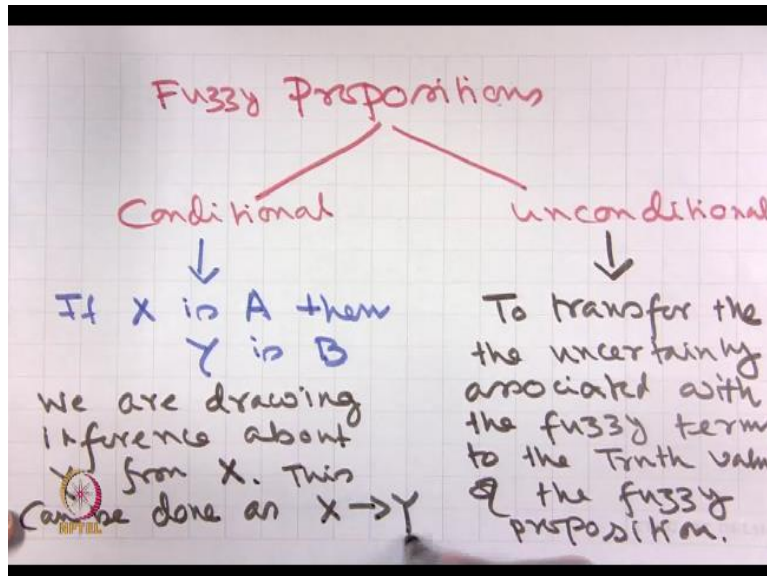 Fuzzy Propositions
Conditional
unconditional
If X is A then
Y is B
We are drawing
inference about
Y from X. This
Can be done as X → Y
To transfer the
the uncertainty
associated with
the fuzzy term
to the Truth value
of the fuzzy
proposition.
NPTEL